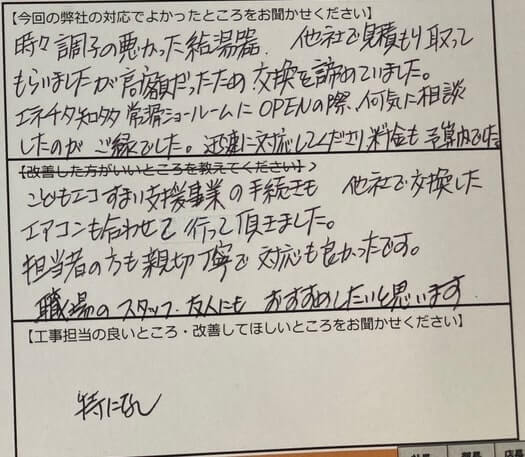 【今回の弊社の対応でよかったところをお聞かせください】
時々調子の悪かった給湯器. 他社で見積もり取って
もらいましたが高額だったため交換を諦めていました。
エネチタ知多常滑ショールームにOPENの際、何気に相談
したのがご縁でした。迅速に対応してくださり、料金も予算内でした。
【改善した方がいいところを教えてください】
こどもエコすまい支援事業の手続きも 他社で交換した
エアコンも合わせて行って頂きました。
担当者の方も親切丁寧で対応も良かったです。
職場のスタッフ・友人にもおすすめしたいと思います.
【工事担当の良いところ・改善してほしいところをお聞かせください】
特になし
店長